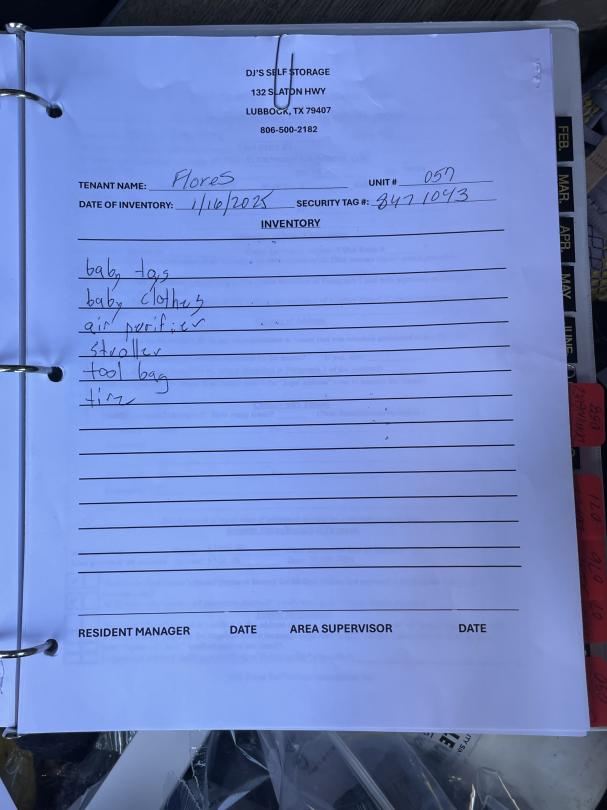 DJ'S SELF STORAGE
132 SLATON HWY
LUBBOCK, TX 79407
806-500-2182
TENANT NAME: Flores UNIT # 057
DATE OF INVENTORY: 1/16/2025 SECURITY TAG #: 8471043
INVENTORY
baby toys
baby clothes
air purifier
stroller
tool bag
tire
RESIDENT MANAGER DATE AREA SUPERVISOR DATE
FEB.
MAR.
APR.
MAY
JUNE